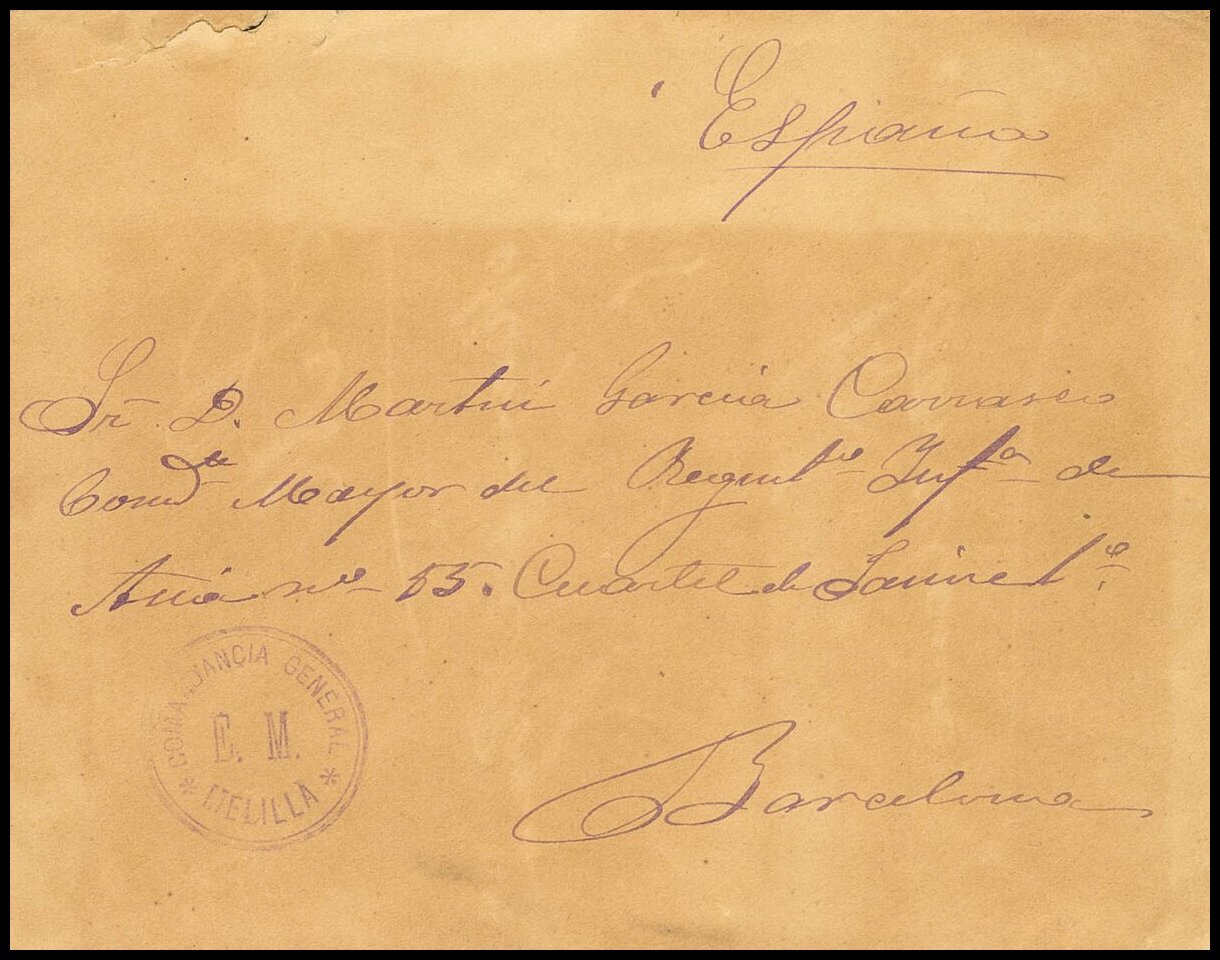 España
Sr. D. Martin Garcia Carrasco
Comdte Mayor del Regimto Infa de
Asia no 55. Cuartel de Jaime 1o.
Barcelona
COMANDANCIA GENERAL
E. M.
* MELILLA *